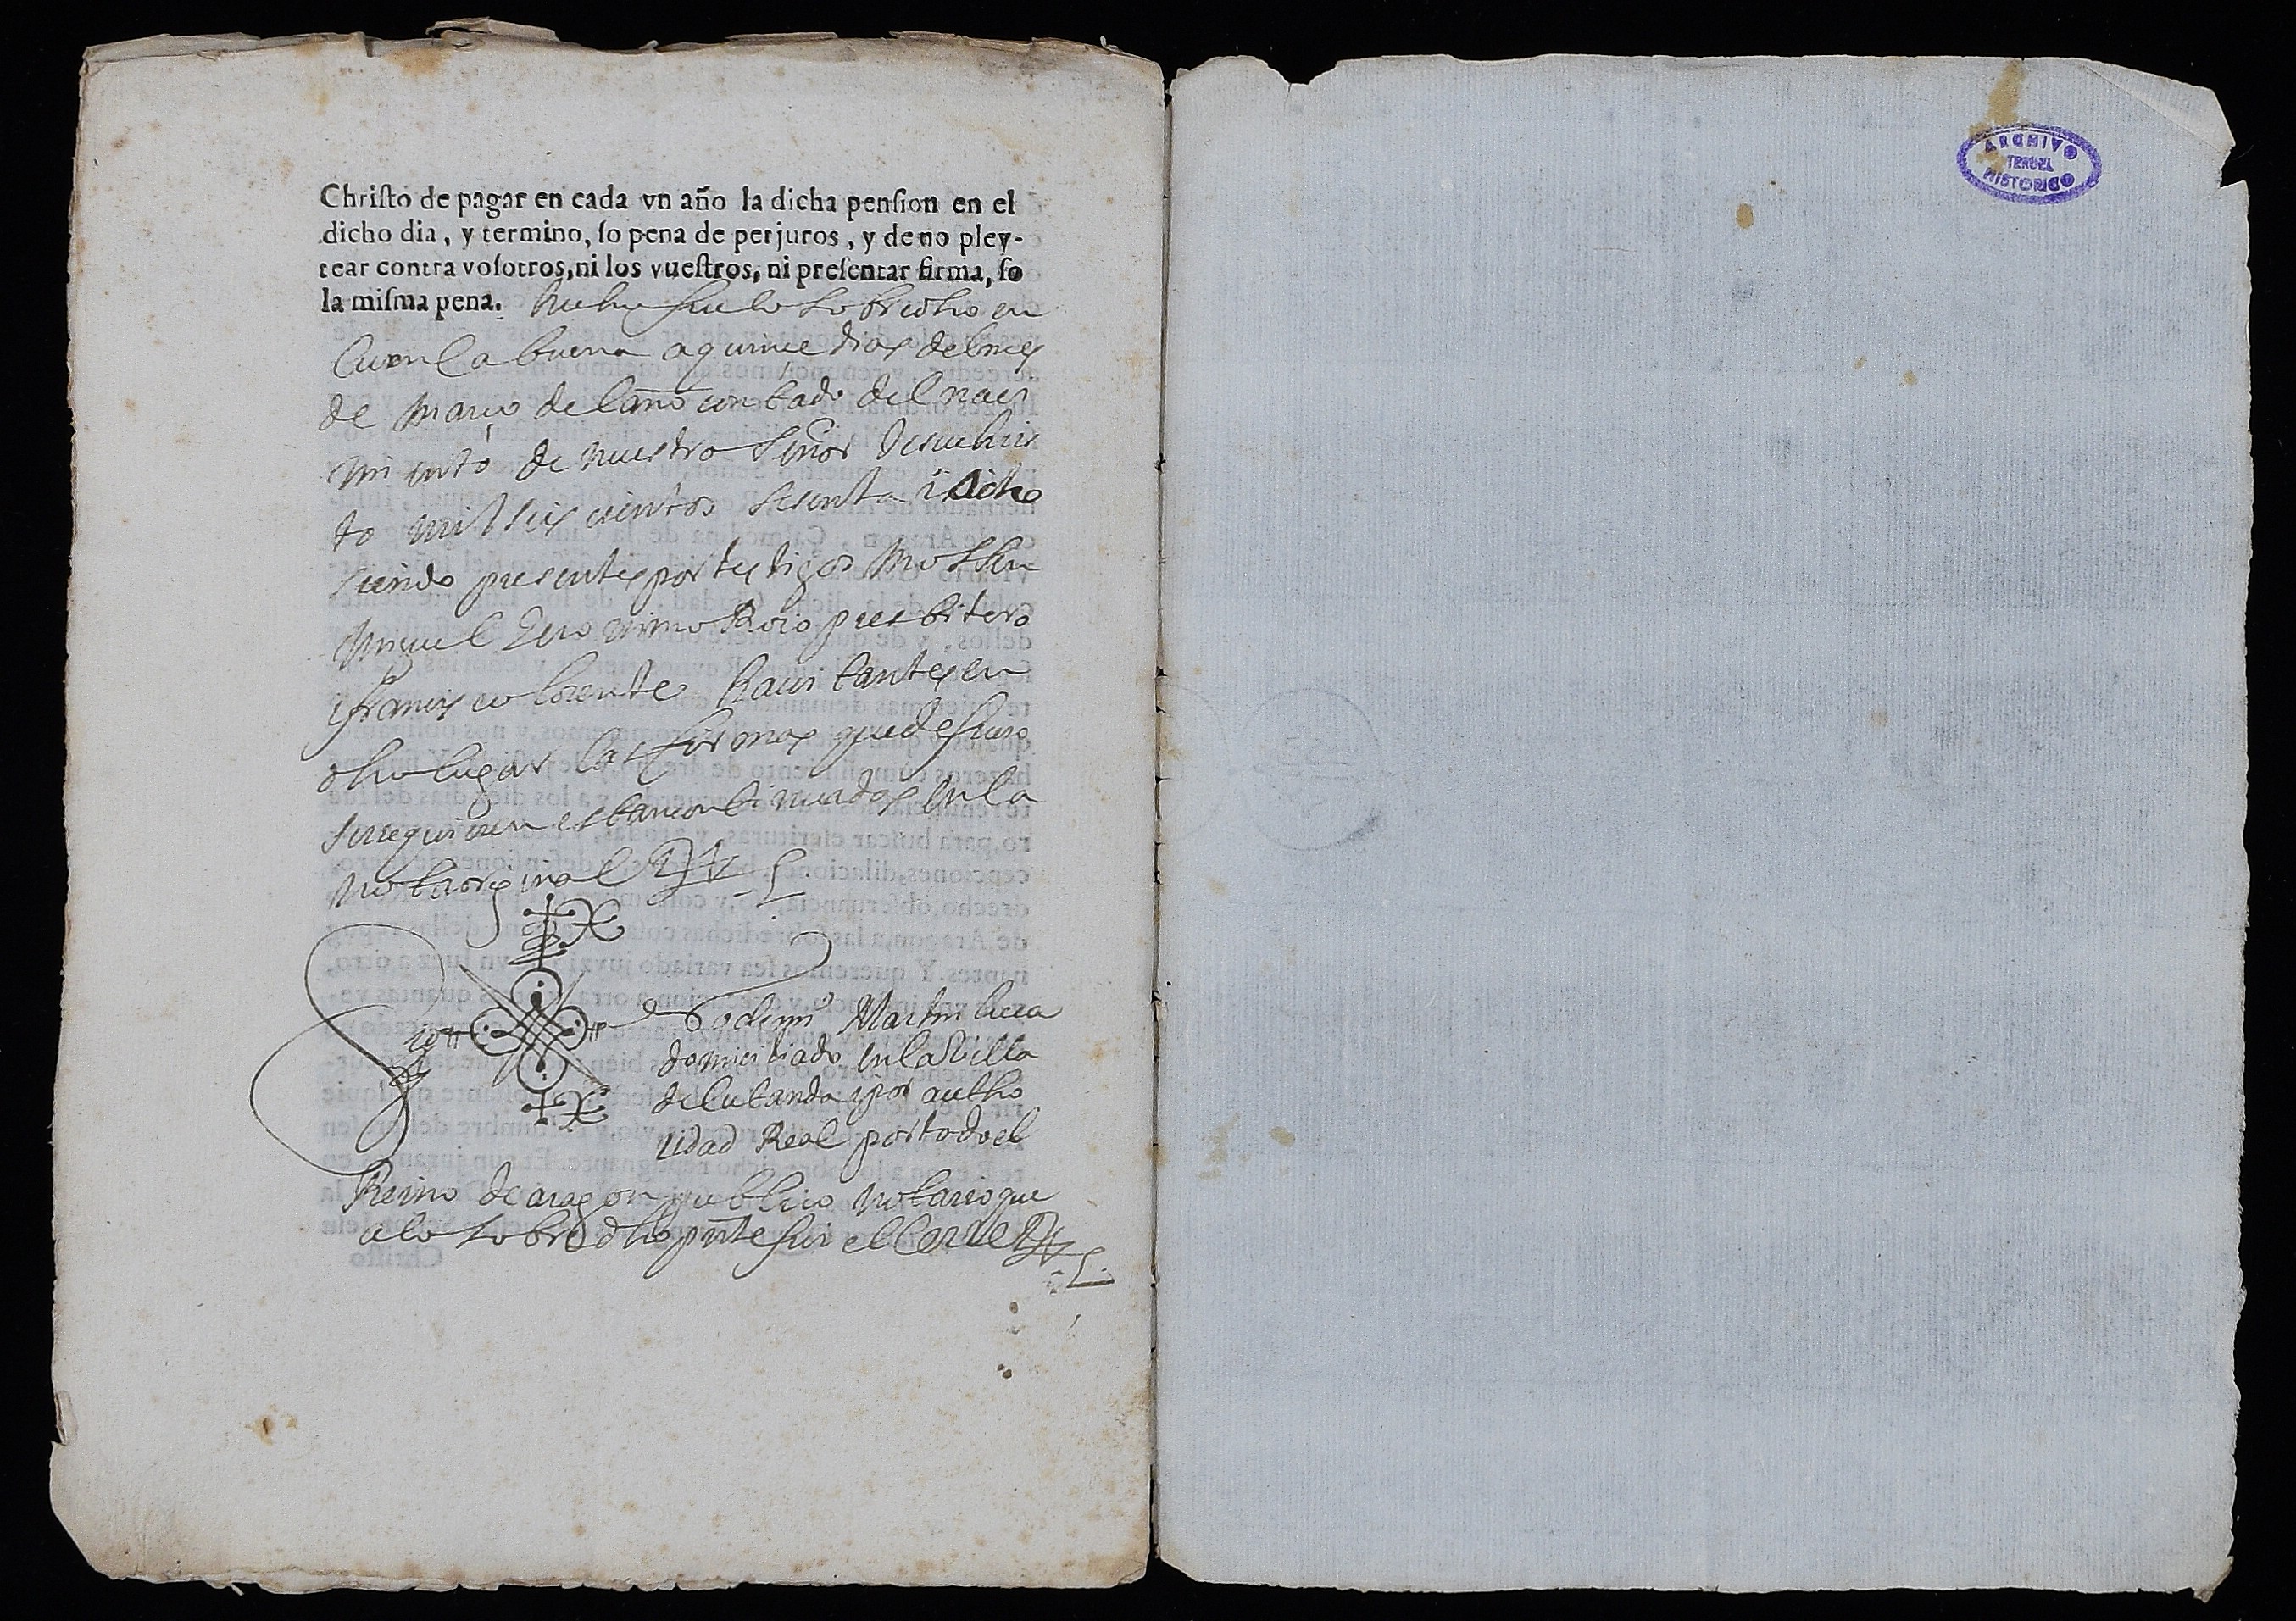 Christo de pagar en cada vn año la dicha pension en el
dicho dia, y termino, so pena de perjuros, y de no pley-
tear contra vosotros, ni los vuestros, ni presentar firma, so
la misma pena. hecho fue lo sobredho en
buena a quince dias del mes
de março del año contado del naci
miento de nuestro señor Jesuchris
to mil seis cientos sesenta i ocho
siendo presentes por testigos Mossen
Miguel Geronimo Roio presbitero
i francisco lorente havitantes en
dho lugar las firmas que de fuero
se requieren estan continuadas en la
nota original
Sig no
de mi Martin
domiciliado en la Villa
de por autho
ridad Real por todo el
Reino de aragon publico notario que
a lo sobredho pnte fui et cerre
ARCHIVO
HISTORICO
TERUEL